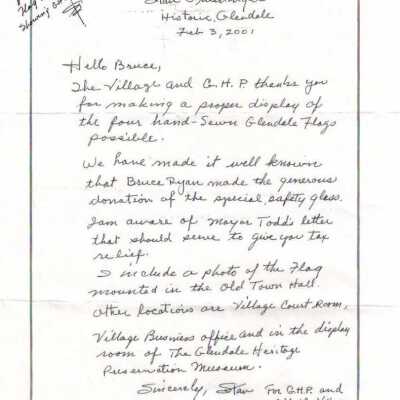 Flag
Showing
Historic, Glendale
Feb 3, 2001
Hello Bruce,
The Village and G.H.P. thanks you
for making a proper display of
the four hand-sewn Glendale Flags
possible.
We have made it well known
that Bruce Ryan made the generous
donation of the special safety glass.
I am aware of Mayor Todd's letter
that should serve to give you tax
relief.
I include a photo of the Flag
mounted in the Old Town Hall.
Other locations are Village Court Room,
Village Business office and in the display
room of The Glendale Heritage
Preservation Museum.
Sincerely, Stan For G.H.P. and